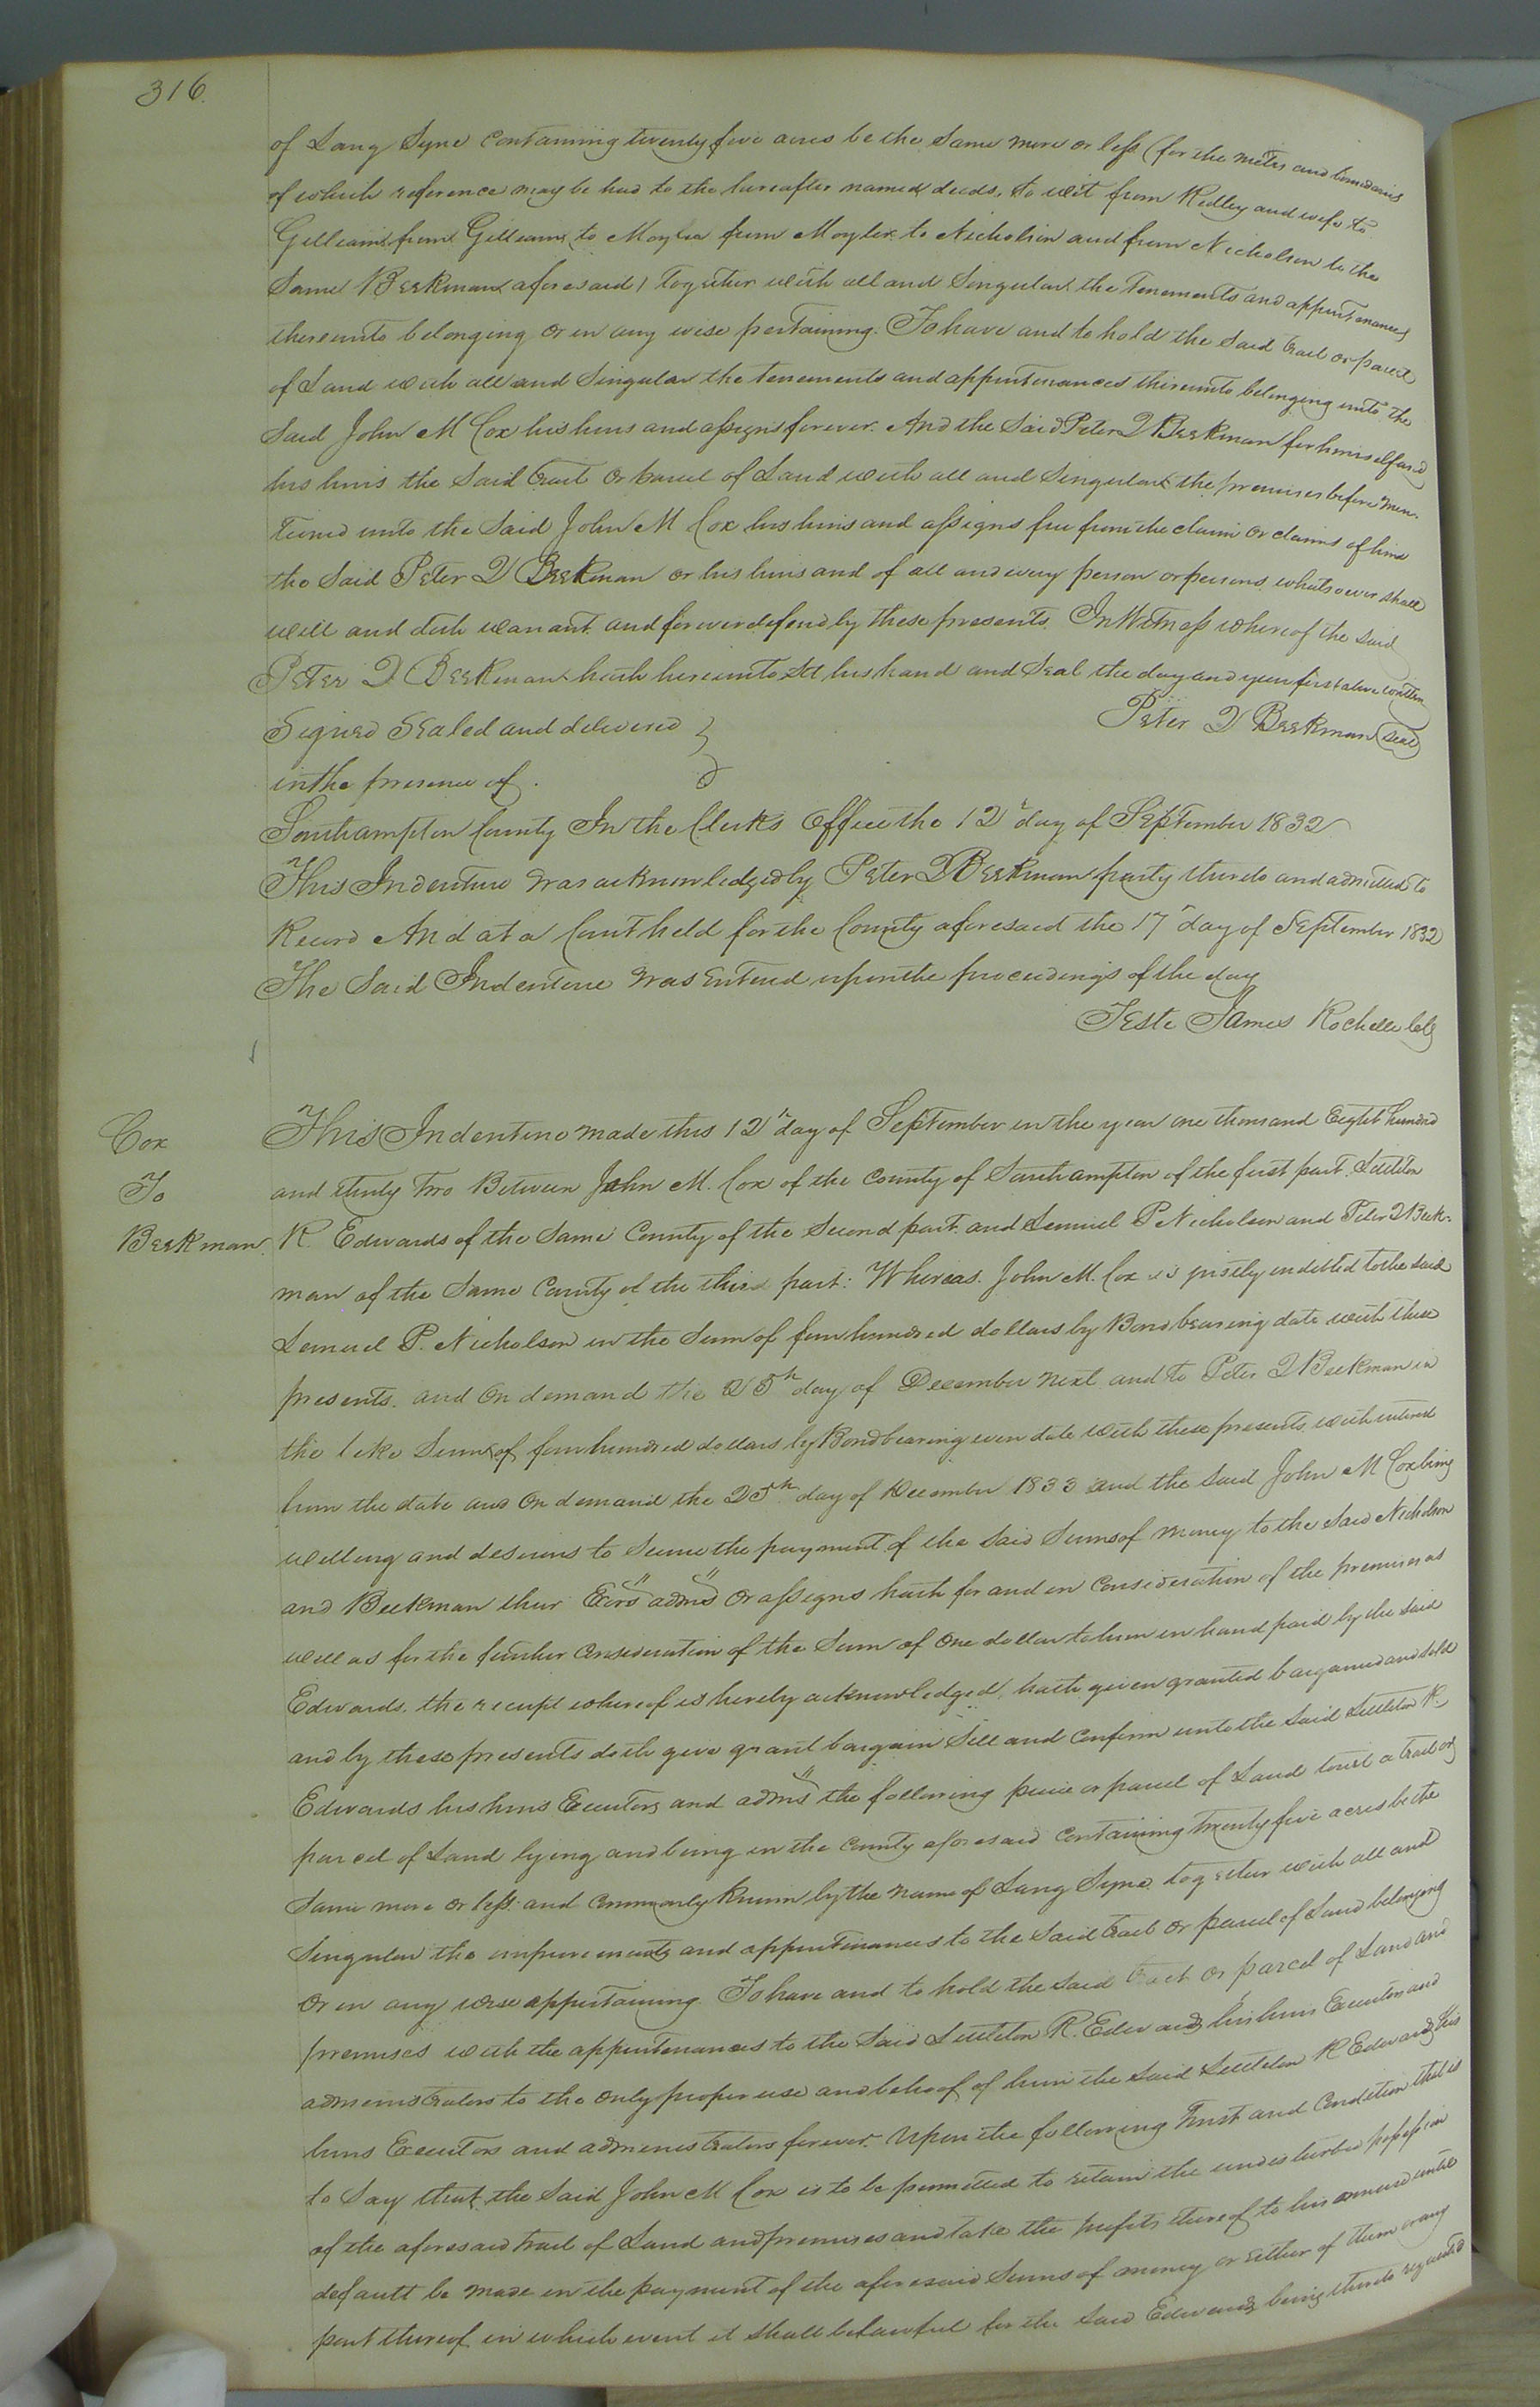 316.
of Lang Syne Containing twenty five acres be the Same more or less (for the meter and boundaries
of which reference may be had to the hereafter named deeds, to wit from Ridley and wife to
Gilliam, from Gilliam to Moyler from Moyler to Nicholson and from Nicholson to the
Same Beekman aforesaid) together with all and Singular the Tenements and appurtenances
thereunto belonging or in any wise pertaining. To have and to hold the Said tract or parcel
of Land with all and Singular the tenements and appurtenances thereunto belonging unto the
Said John M Cox his heirs and assigns forever. And the Said Peter D Beekman for himself and
his heirs the Said tract or parcel of Land with all and Singular the premises before men-
tioned unto the Said John M Cox his heirs and assigns free from the claim or claims of him
the Said Peter D Beekman or his heirs and of all and every person or persons whatsoever shall
will and doth warrant and forever defend by these presents. In Witness whereof the Said
Peter D Beekman hath hereunto Set his hand and Seal the day and year first above written
Signed Sealed and delivered }
Peter D Beekman (seal)
in the presence of.
Southampton County In the Clerks Office the 12th day of September 1832
This Indenture was acknowledged by Peter D Beekman party thereto and admitted to
Record And at a Court held for the County aforesaid the 17th day of September 1832
The Said Indenture was Entered upon the proceedings of the day
Teste James Rochelle Clk
Cox
To
Beekman
This Indenture made this 12th day of September in the year one thousand Eight hundred
and thirty two Between John M. Cox of the County of Southampton of the first part. Littleton
R. Edwards of the Same County of the Second part. and Lemuel P Nicholson and Peter D Beek-
man of the Same County of the third part: Whereas. John M. Cox is justly indebted to the said
Lemuel P. Nicholson in the Sum of four hundred dollars by Bond bearing date with these
presents. and On demand the 25th day of December next and to Peter D Beekman in
the like Sum of four hundred dollars by Bond bearing even date with these presents with interest
from the date and On demand the 25th day of December 1833 and the Said John M Cox being
willing and desirous to Secure the payment of the Said Sums of money to the Said Nicholson
and Beekman their Exors admrs Or assigns hath for and in Consideration of the premises as
well as for the further Consideration of the Sum of One dollar to him in hand paid by the Said
Edwards. the receipt whereof is hereby acknowledged, hath given granted bargained and sold
and by these presents doth give grant bargain Sell and Confirm unto the Said Littleton R.
Edwards his heirs Executors and admrs the following piece or parcel of Land towit a tract or
parcel of Land lying and being in the County aforesaid Containing twenty five acres be the
Same more or less and Commonly known by the name of Lang Syne. together with all and
Singular the improvements and appurtenances to the Said tract Or parcel of Land belonging
Or in any wise appertaining. To have and to hold the Said tract Or parcel of Land and
premises with the appurtenances to the Said Littleton R. Edwards his heirs Executors and
administrators to the Only proper use and behoof of him the Said Littleton R Edwards his
heirs Executors and administrators forever. Upon the following Trust and Condition that is
to Say that the Said John M Cox is to be permitted to retain the undisturbed possession
of the aforesaid tract of Land and premises and take the profits thereof to his own use until
default be made in the payment of the aforesaid Sums of money or Either of them or any
part thereof in which event it Shall be Lawful for the Said Edwards being thereto requested